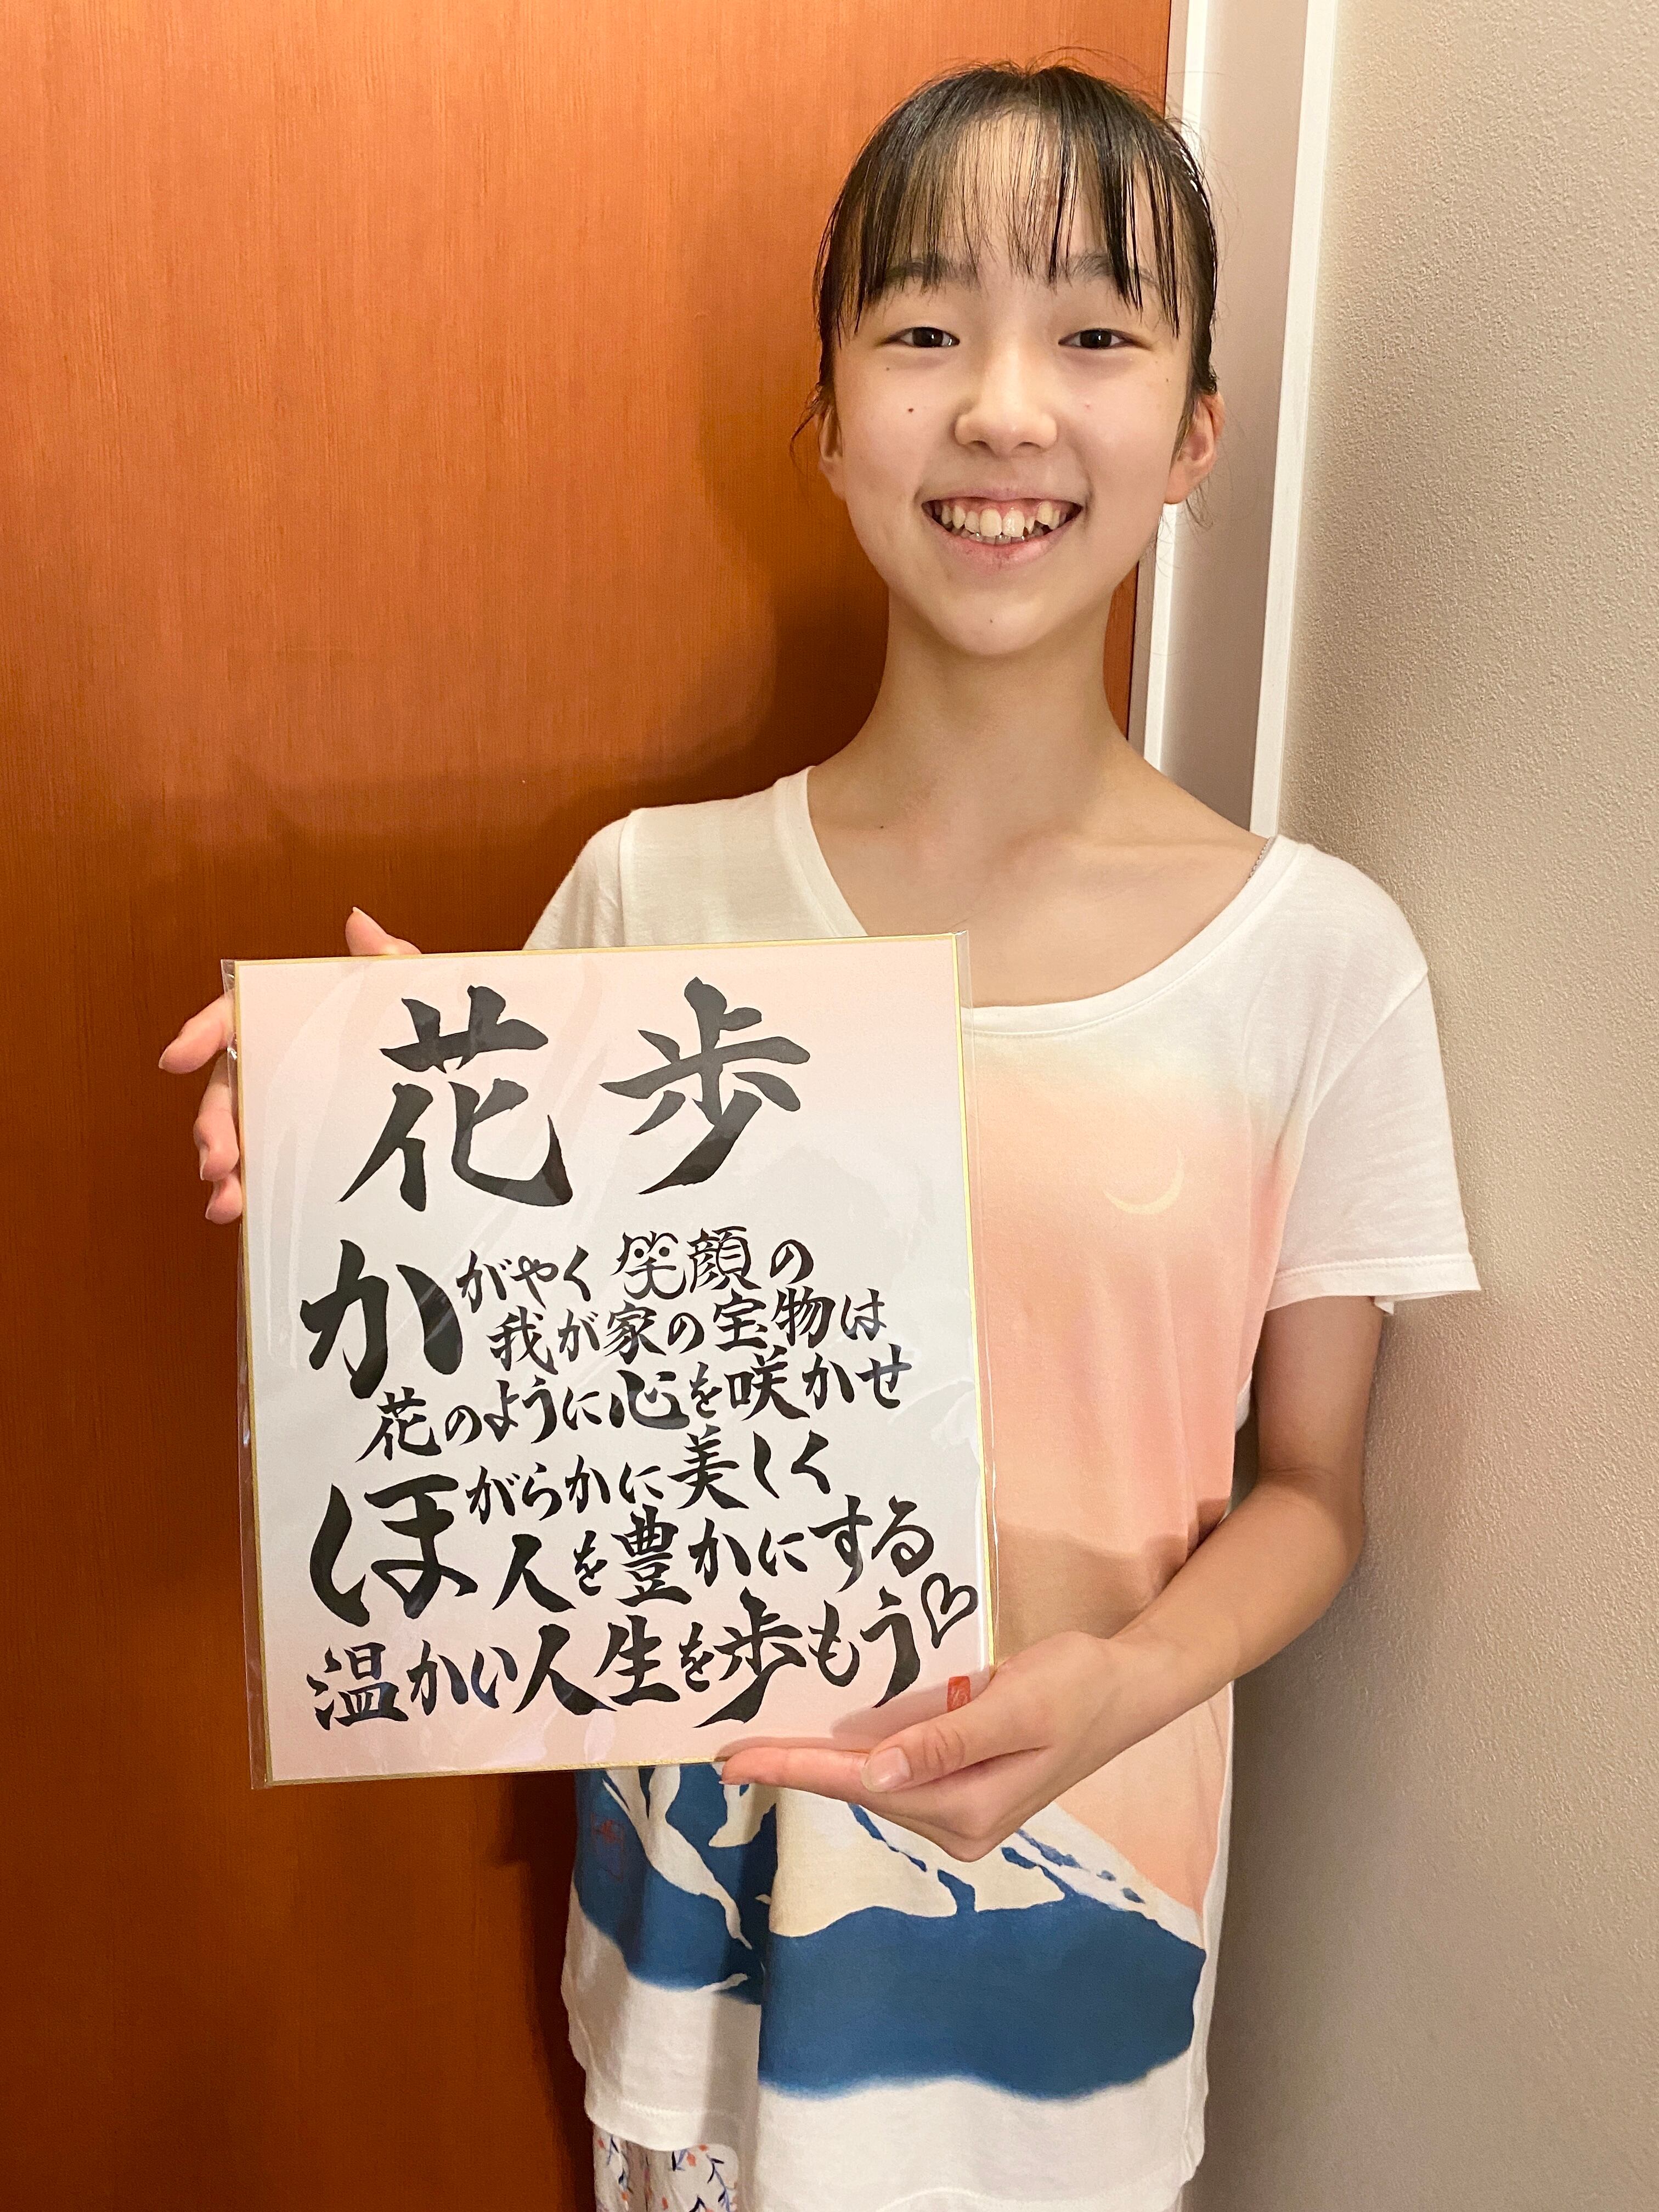 花歩
かがやく笑顔の
我が家の宝物は
花のように心を咲かせ
ほがらかに美しく
人を豊かにする
温かい人生を歩もう♡